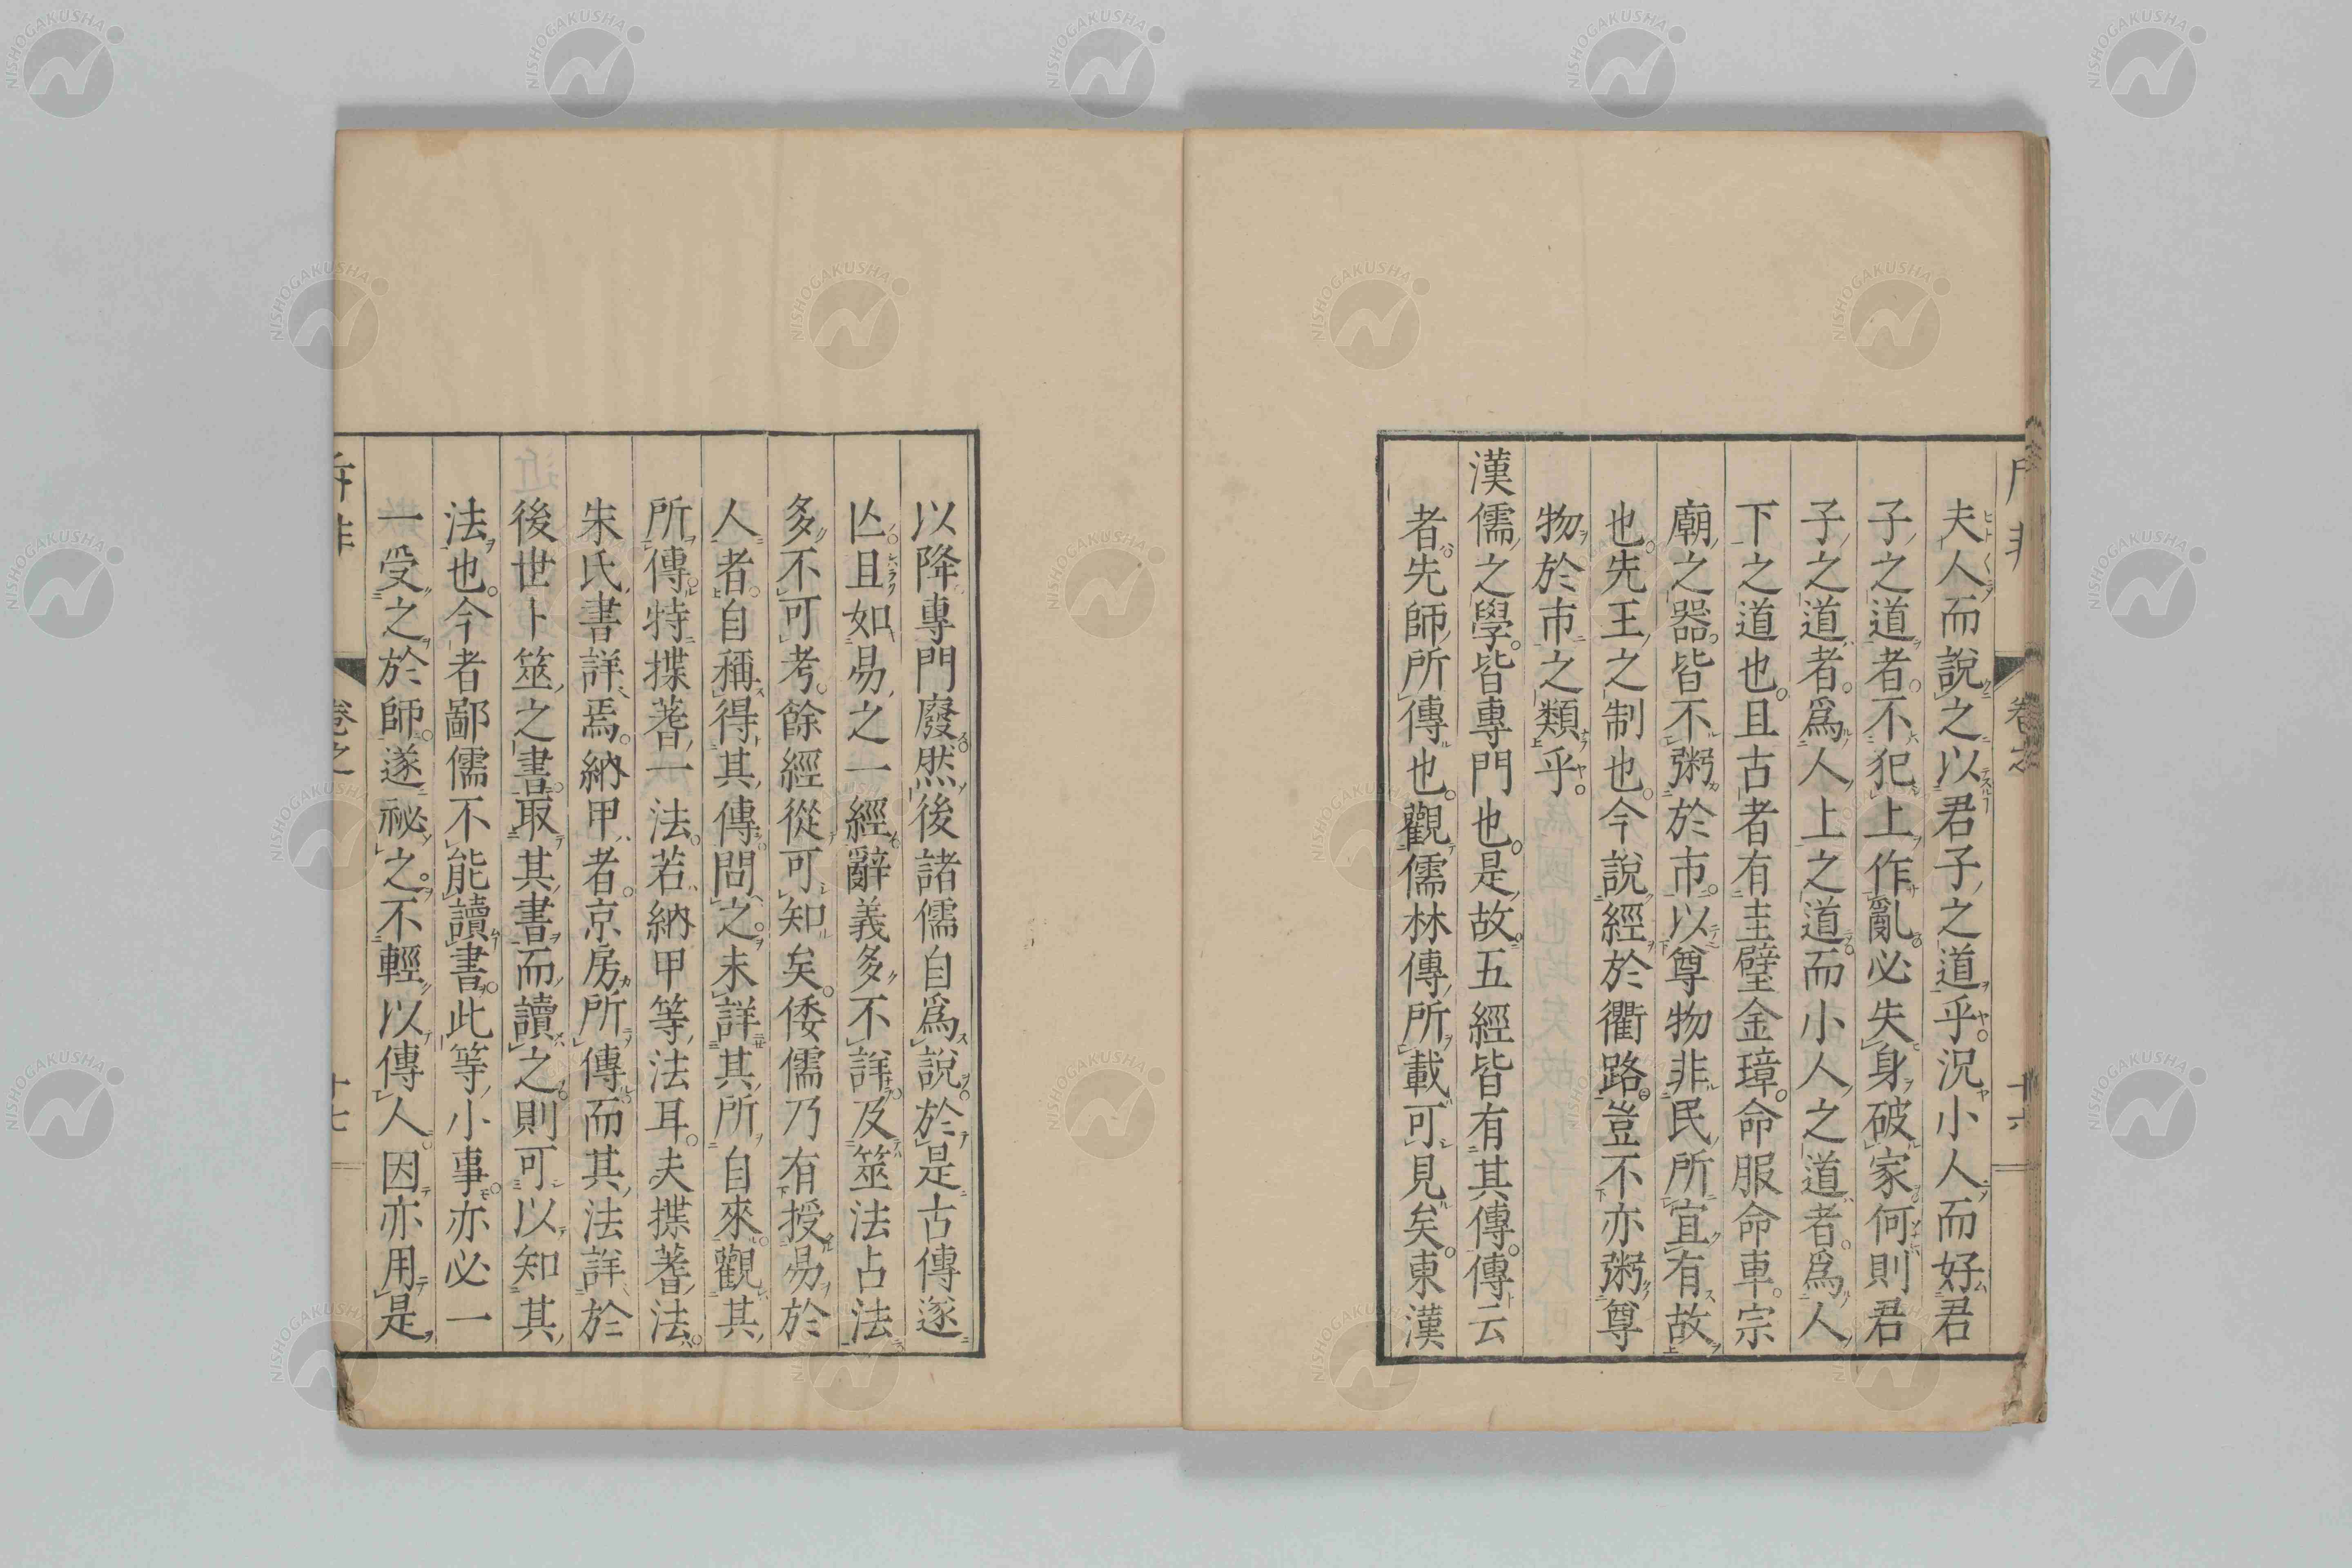 夫人而說之以君子之道乎況小人而好君
子之道者不犯上作亂必失身破家何則君
子之道者爲人上之道而小人之道者爲人
下之道也且古者有圭璧金璋命服命車宗
廟之器皆不粥於市以尊物非民所宜有故
也先王之制也今說經於衢路豈不亦粥尊
物於市之類乎
漢儒之學皆專門也是故五經皆有其傳傳云
者先師所傳也觀儒林傳所載可見矣東漢
以降專門廢然後諸儒自爲說於是古傳遂
亾且如易之一經辭義多不詳及筮法占法
多不可考餘經從可知矣倭儒乃有授易於
人者自稱得其傳問之未詳其所自來觀其
所傳特揲蓍一法若納甲等法耳夫揲蓍法
朱氏書詳焉納甲者京房所傳而其法詳於
後世卜筮之書取其書而讀之則可以知其
法也今者鄙儒不能讀書此等小事亦必一
一受之於師遂祕之不輕以傳人因亦用是
卷之
十七
NISHOGAKUSHA